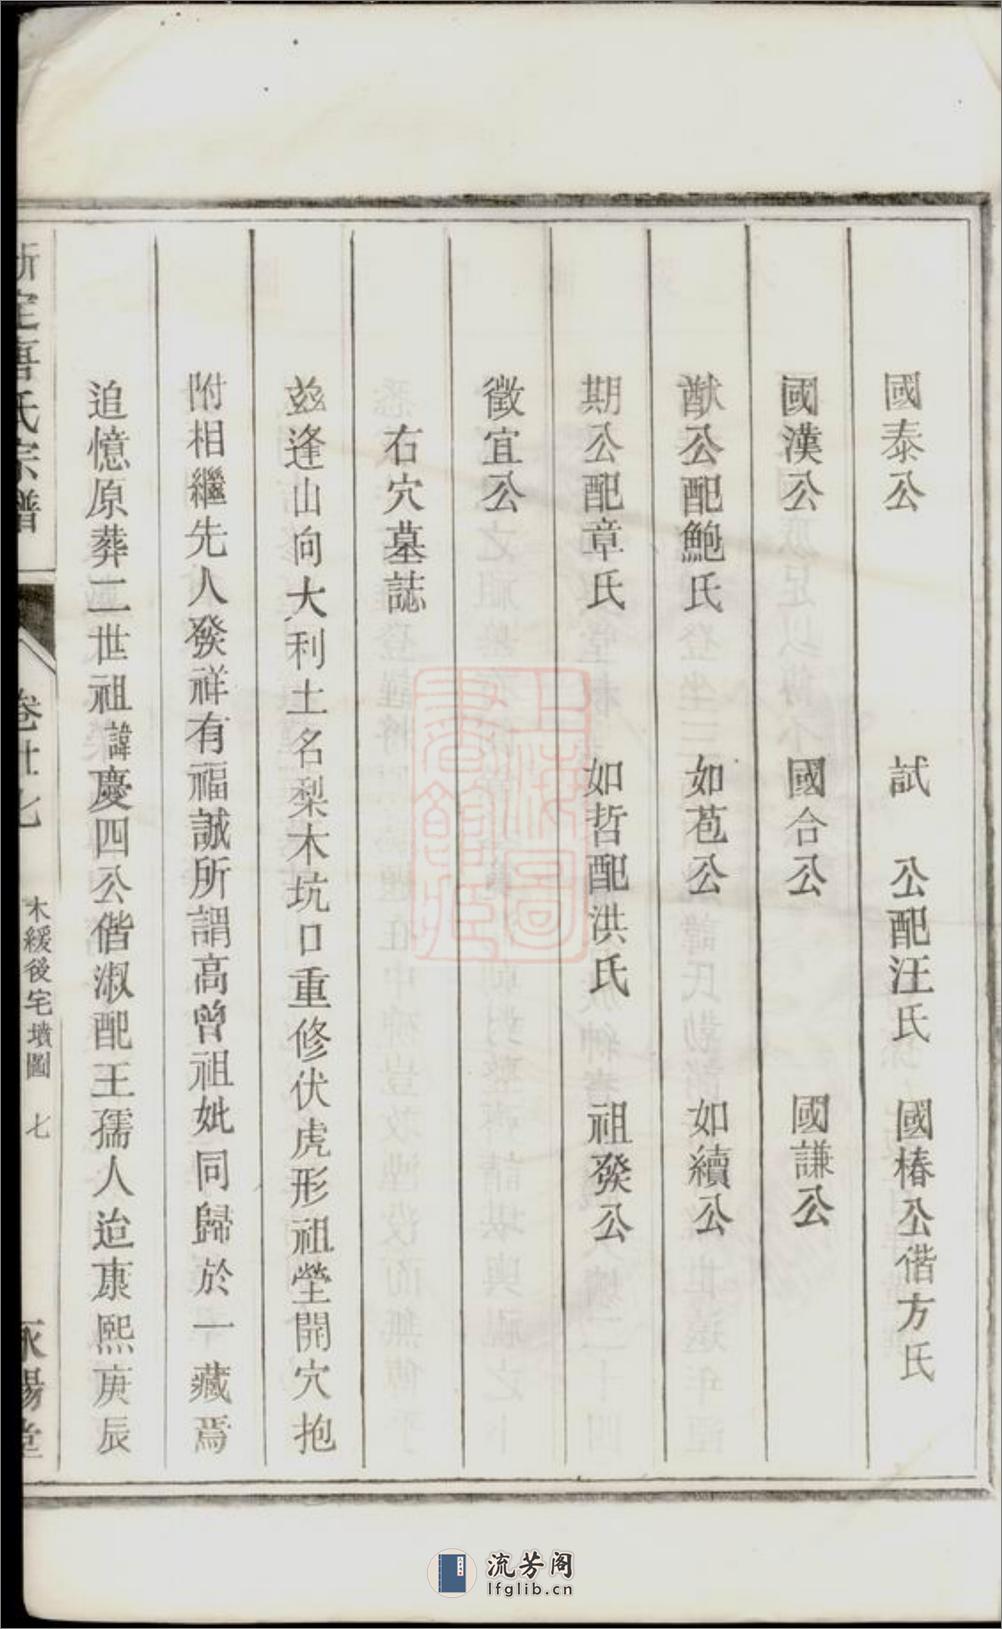 國泰公　試　公配汪氏　國椿公偕方氏
國漢公　國合公　國謙公
猷公配鮑氏　如苞公　如續公
期公配章氏　如哲配洪氏　祖發公
徵宜公
右穴墓誌
玆逢山向大利土名梨木坑口重修伏虎形祖塋開穴抱
附相繼先人發祥有福誠所謂高曾祖妣同歸於一藏焉
追憶原葬二世祖諱慶四公偕淑配王孺人迨康熙庚辰
新定唐氏宗譜
卷廿七
木緩後宅墳圖　七
永陽堂
上海圖書館藏
流芳阁
lfglib.cn